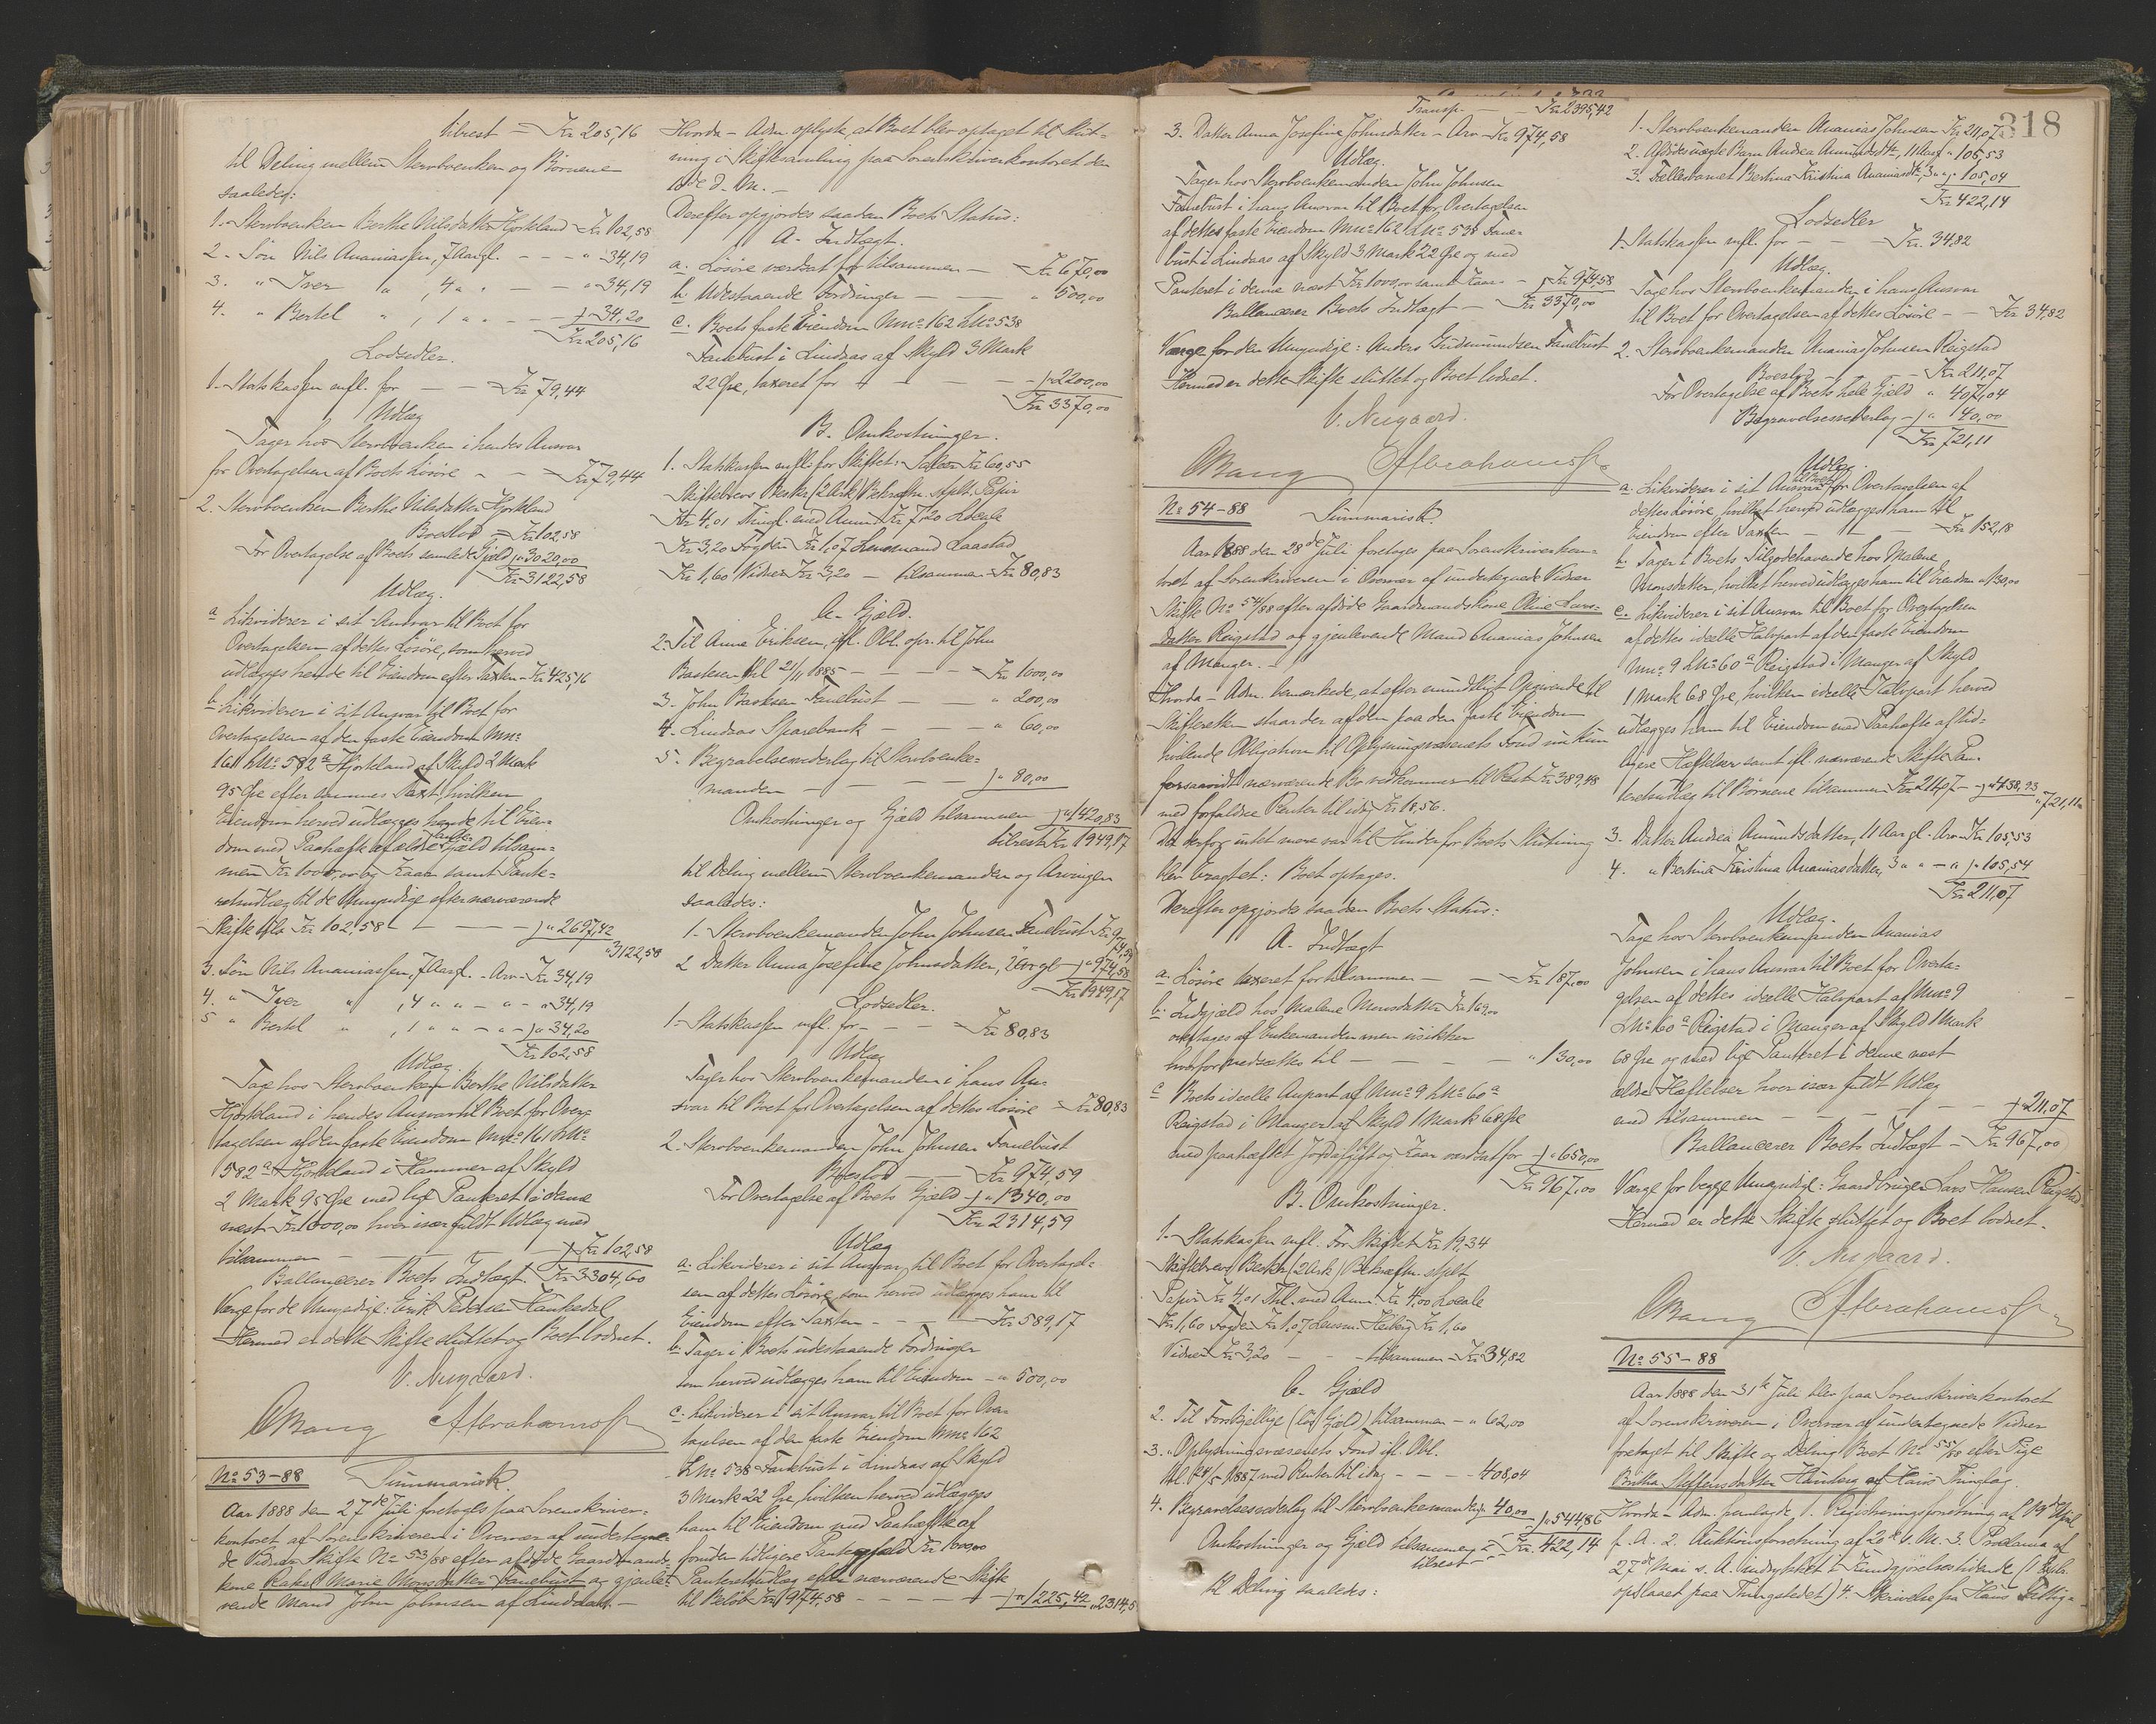 tilrest = Kr 205,16
til Deling mellem Stervboenken og Børnene
saaledes:
1. Stervboenken Berthe Nilsdatter Hjorteland Kr 102,58
2. Søn Nils Ananiassen, 7 Aar gl. - - - " 34,19
3. " Iver " , 4 " " - - " 34,19
4. " Bertel " , 1 " " - - " 34,20
Kr 205,16
Lodsedler.
1. Statskassen mfl. for - - Kr 79,44
Udlæg
Tager hos Stervboenken i hendes Ansvar
for Overtagelsen af Boets Løsøre - - Kr 79,44
2. Stervboenken Berthe Nilsdatter Hjorteland
Boeslod = Kr 102,58
For Overtagelse af Boets samlede Gjæld " 3020,00
Kr 3122,58
Udlæg.
a Likviderer i sit Ansvar til Boet for
Overtagelsen af dettes Løsøre, som herved
udlægges hende til Eiendom efter Taxten - Kr 425,16
b. Likviderer i sit Ansvar til Boet for
Overtagelsen af den faste Eiendom Mno
161 LNo 582a Hjorteland af Skyld 2 Mark
95 Øre efter sammes Taxt, hvilken
Eiendom herved udlægges hende til Eien-
dom med Paahæfte af ældre Gjæld tilsam-
men Kr 1000,00 og Kaar samt Pante-
retsudlæg til de Umyndige efter nærværende
Skifte Kr 102,58 - - - " 2697,42
" 3122,58
3. Søn Nils Ananiassen, 7 Aar gl. - Arv - Kr 34,19
4. " Iver " , 4 " " - " - " 34,19
5 " Bertel " , 1 " " - " - " 34,20
Kr 102,58
Udlæg.
Tage hos Stervboenken Berthe Nilsdatter
Hjorteland i hendes Ansvar til Boet for Over-
tagelsen af den faste Eiendom Mno 161 LNo
582a Hjorteland i Hammer af Skyld
2 Mark 95 Øre med lige Panteret i denne
næst Kr 1000,00 hver især fuldt Udlæg med
tilsammen - - - Kr 102,58
Ballancerer Boets Indtægt. Kr 3304,60
Værge for de Umyndige: Erik Pedersen Hankedal
Hermed er dette Skifte sluttet og Boet lodnet.
V. Neegaard.
CBang Abrahamsen
No 53-88 Summarisk.
Aar 1888 den 27de Juli foretoges paa Sorenskriver-
kontoret af Sorenskriveren i Overvær af undertegne-
de Vidner Skifte No 53/88 efter afdøde Gaardmands-
kone Rakel Marie Monsdatter Fanebust og gjenle-
vende Mand John Johnsen af Lindaas. -
Hvorda - Adm. oplyste, at Boet blev optaget til Slut-
ning i Skiftesamling paa Sorenskriverkontoret den
10de d. M. -
Derefter opgjordes saadan Boets Status:
A. Indtægt.
a. Løsøre værdsat for tilsammen - Kr 670,00
b. Udestaaende Fordringer - - " 500,00
c. Boets faste Eiendom Mno 162 LNo 538
Fanebust i Lindaas af Skyld 3 Mark
22 Øre, taxeret for - - - " 2200,00
Kr 3370,00
B. Omkostninger.
1. Statskassen mfl. for Skiftet: Salær Kr 60,55
Skiftebrevs Beskr. (2 Ark) Bekræftn. stplt. Papir
Kr 4,01 Thingl. med Ann. Kr 7,20 Locale
Kr 3,20 Fogden Kr 1,07 Lensmand Laastad
Kr 1,60 Vidner Kr 3,20 - tilsammen Kr 80,83
C. Gjæld.
2. Til Anna Eriksen, ifl. Obl. opr. til John
Baskesen thl 21/11 1885 - - - Kr 1000,00
3. John Baskesen Fanebust - - " 200,00
4. Lindaas Sparebank - - - " 60,00
5. Begravelsesvederlag til Stervboenke-
manden - - - " 80,00
Omkostninger og Gjæld tilsammen " 1420,83
tilrest Kr 1949,17
til Deling mellem Stervboenkemanden og Arvingen
saaledes:
1. Stervboenkemanden John Johnsen Fanebust Kr 974,59
2 Datter Anna Josefine Johnsdatter, 2 Aar gl - " 974,58
Kr 1949,17
Lodsedler.
1. Statskassen mfl. for - - - Kr 80,83
Udlæg
Tager hos Stervboenkemanden i hans An-
svar til Boet for Overtagelsen af dettes Løsøre = Kr 80,83
2. Stervboenkemanden John Johnsen Fanebust
Boeslod - - Kr 974,59
For Overtagelse af Boets Gjæld " 1340,00
Kr 2314,59
Udlæg
a. Likviderer i sit Ansvar til Boet for Overtagel-
sen af dettes Løsøre, som herved udlægges ham til
Eiendom efter Taxten - - Kr 589,17
b. Tager i Boets udestaaende Fordringer
som herved udlægges ham til Eiendom - " 500,00
c. Likviderer i sit Ansvar til Boet for Over-
tagelsen af den faste Eiendom Mno 162
LNo 538 Fanebust i Lindaas af Skyld
3 Mark 22 Øre, hvilken herved udlægges
ham til Eiendom med Paahæfte af
foruden tidligere Pantegjæld Kr 1000,00
Panteretsudlæg efter nærværende Skifte
til Beløb Kr 974,58 - - - - " 1225,42 " 2314,5
Transp. - Kr 2395,42
3. Datter Anna Josefine Johnsdatter - Arv - Kr 974,58
Udlæg.
Tager hos Stervboenkemanden John Johnsen
Fanebust i hans Ansvar til Boet for Overtagelsen
af dettes faste Eiendom Mno 162 LNo 538 Fane-
bust i Lindaas af Skyld 3 Mark 22 Øre og med
Panteret i denne næst Kr 1000,00 samt Kaar - Kr 974,58
Ballancerer Boets Indtægt - Kr 3370,00
Værge for den Umyndige: Anders Gudmundsen Fanebust
Hermed er dette Skifte sluttet og Boet lodnet.
V. Neegaard.
CBang Abrahamsen
No 54-88 Summarisk.
Aar 1888 den 28de Juli foretoges paa Sorenskriverkon-
toret af Sorenskriveren i Overvær af undertegnede Vidner
Skifte No 54/88 efter afdøde Gaardmandskone Oline Lars-
datter Reigstad og gjenlevende Mand Ananias Johnsen
af Manger. -
Hvorda - Adm. bemærkede, at efter mundtligt Opgivende til
Skifteretten skyldes der af den paa den faste Eiendom
hvilende Obligation til Oplysningsvæsenets Fond nu kun
forsaavidt nærværende Bo vedkommer til Rest Kr 389,48
med forfaldne Renter til idag Kr 18,56.
Da derfor intet mere var til Hinder for Boets Slutning
blev eragtet: Boet optages.
Derefter opgjordes saadan Boets Status:
A. Indtægt
a. Løsøre taxeret for tilsammen - - Kr 187,00
b. Indgjæld hos Malene Monsdatter Kr 169,00
overtages af Enkemanden men usikker
hvorfor nedsættes til - - - - " 130,00
c Boets ideelle Anpart af Mno 9 LNo 60a
Reigstad i Manger af Skyld 1 Mark 68 Øre
med paahæftet Jordafgift og Kaar værdsat for " 650,00
Kr 967,00
B. Omkostninger.
1. Statskassen mfl. For Skiftet Kr 19,34
Skiftebrevs Beskr. (2 Ark) Bekræftn. stplt
Papir Kr 4,01 Thl. med Ann. Kr 4,00 Locale
Kr 1,60 Fogden Kr 1,07 Lensm. Heiberg Kr 1,60
Vidner Kr 3,20 - - tilsammen - Kr 34,82
C. Gjæld
2. Til Forskjellige (løs Gjæld) tilsammen - " 62,00
3. Oplysningsvæsenets Fond ifl. Obl.
thl. 24/5 1887 med Renter til idag - - - 408,04
4. Begravelsesvederlag til Stervboenkemanden 40,00 " 544,86
Omkostninger og Gjæld tilsammen
tilrest - Kr 422,14
til Deling saaledes:
318
1. Stervboenkemanden Ananias Johnsen Kr 211,07
2. Afdødes uægte Barn Andrea Amundsdtr, 11 Aar gl " 105,53
3. Fællesbarnet Bertina Kristina Ananiasdtr, 3 " " 105,04
Kr 422,14
Lodsedler
1. Statskassen mfl. for - - Kr. 34,82
Udlæg.
Tage hos Stervboenkemanden i hans Ansvar
til Boet for Overtagelsen af dettes Løsøre - - Kr 34,82
2. Stervboenkemanden Ananias Johnsen Reigstad
Boeslod - - Kr 211,07
For Overtagelse af Boets hele Gjæld " 407,04
Begravelsesvederlag - " 140,00
Kr 721,11
Udlæg.
a. Likviderer i sit Ansvar til Boet for Overtagelsen af
dettes Løsøre, hvilket herved udlægges ham til
Eiendom efter Taxten - - - Kr 152,18
b. Tager i Boets Tilgodehavende hos Malene
Monsdatter, hvilket herved udlægges ham til Eiendom " 130,00
c. Likviderer i sit Ansvar til Boet for Overtagelsen
af dettes ideelle Halvpart af den faste Eiendom
Mno 9 LNo 60a Reigstad i Manger af Skyld
1 Mark 68 Øre, hvilken ideelle Halvpart herved
udlægges ham til Eiendom med Paahæfte af tid-
ligere Heftelser samt ifl. nærværende Skifte Pan-
teretsudlæg til Børnene tilsammen Kr 211,07 - " 458,93
" 721,11
3. Datter Andrea Amundsdatter, 11 Aar gl - Arv Kr 105,53
4. " Bertina Kristina Ananiasdatter, 3 " " - " 105,54
Kr 211,07
Udlæg.
Tage hos Stervboenkemanden Ananias
Johnsen i hans Ansvar til Boet for Overta-
gelsen af dettes ideelle Halvpart af Mno 9
LNo 60a Reigstad i Manger af Skyld 1 Mark
68 Øre og med lige Panteret i denne næst
ældre Heftelser hver især fuldt Udlæg
med tilsammen - - - - - " 211,07
Ballancerer Boets Indtægt - Kr 967,00
Værge for begge Umyndige: Gaardbruger Lars Hansen Reigstad
Hermed er dette Skifte sluttet og Boet lodnet.
V. Neegaard.
CBang Abrahamsen
No 55-88
Aar 1888 den 31te Juli blev paa Sorenskriverkontoret
af Sorenskriveren i Overvær af undertegnede Vidner
foretaget til Skifte og Deling Boet No 55/88 efter Pige
Britha Steffensdatter af Haus Thinglag.
Hvorda - Adm. fremlagde 1. Registreringsforretning af 19de April
f. A. 2. Auktionsforretning af 20de s. M. 3. Proclama af
27de Mai s. A. indrykket i Kundgjørelsestidende (1 Expl.
opslaaet paa Thingstedet) 4. Skrivelse fra Haus Fattig-